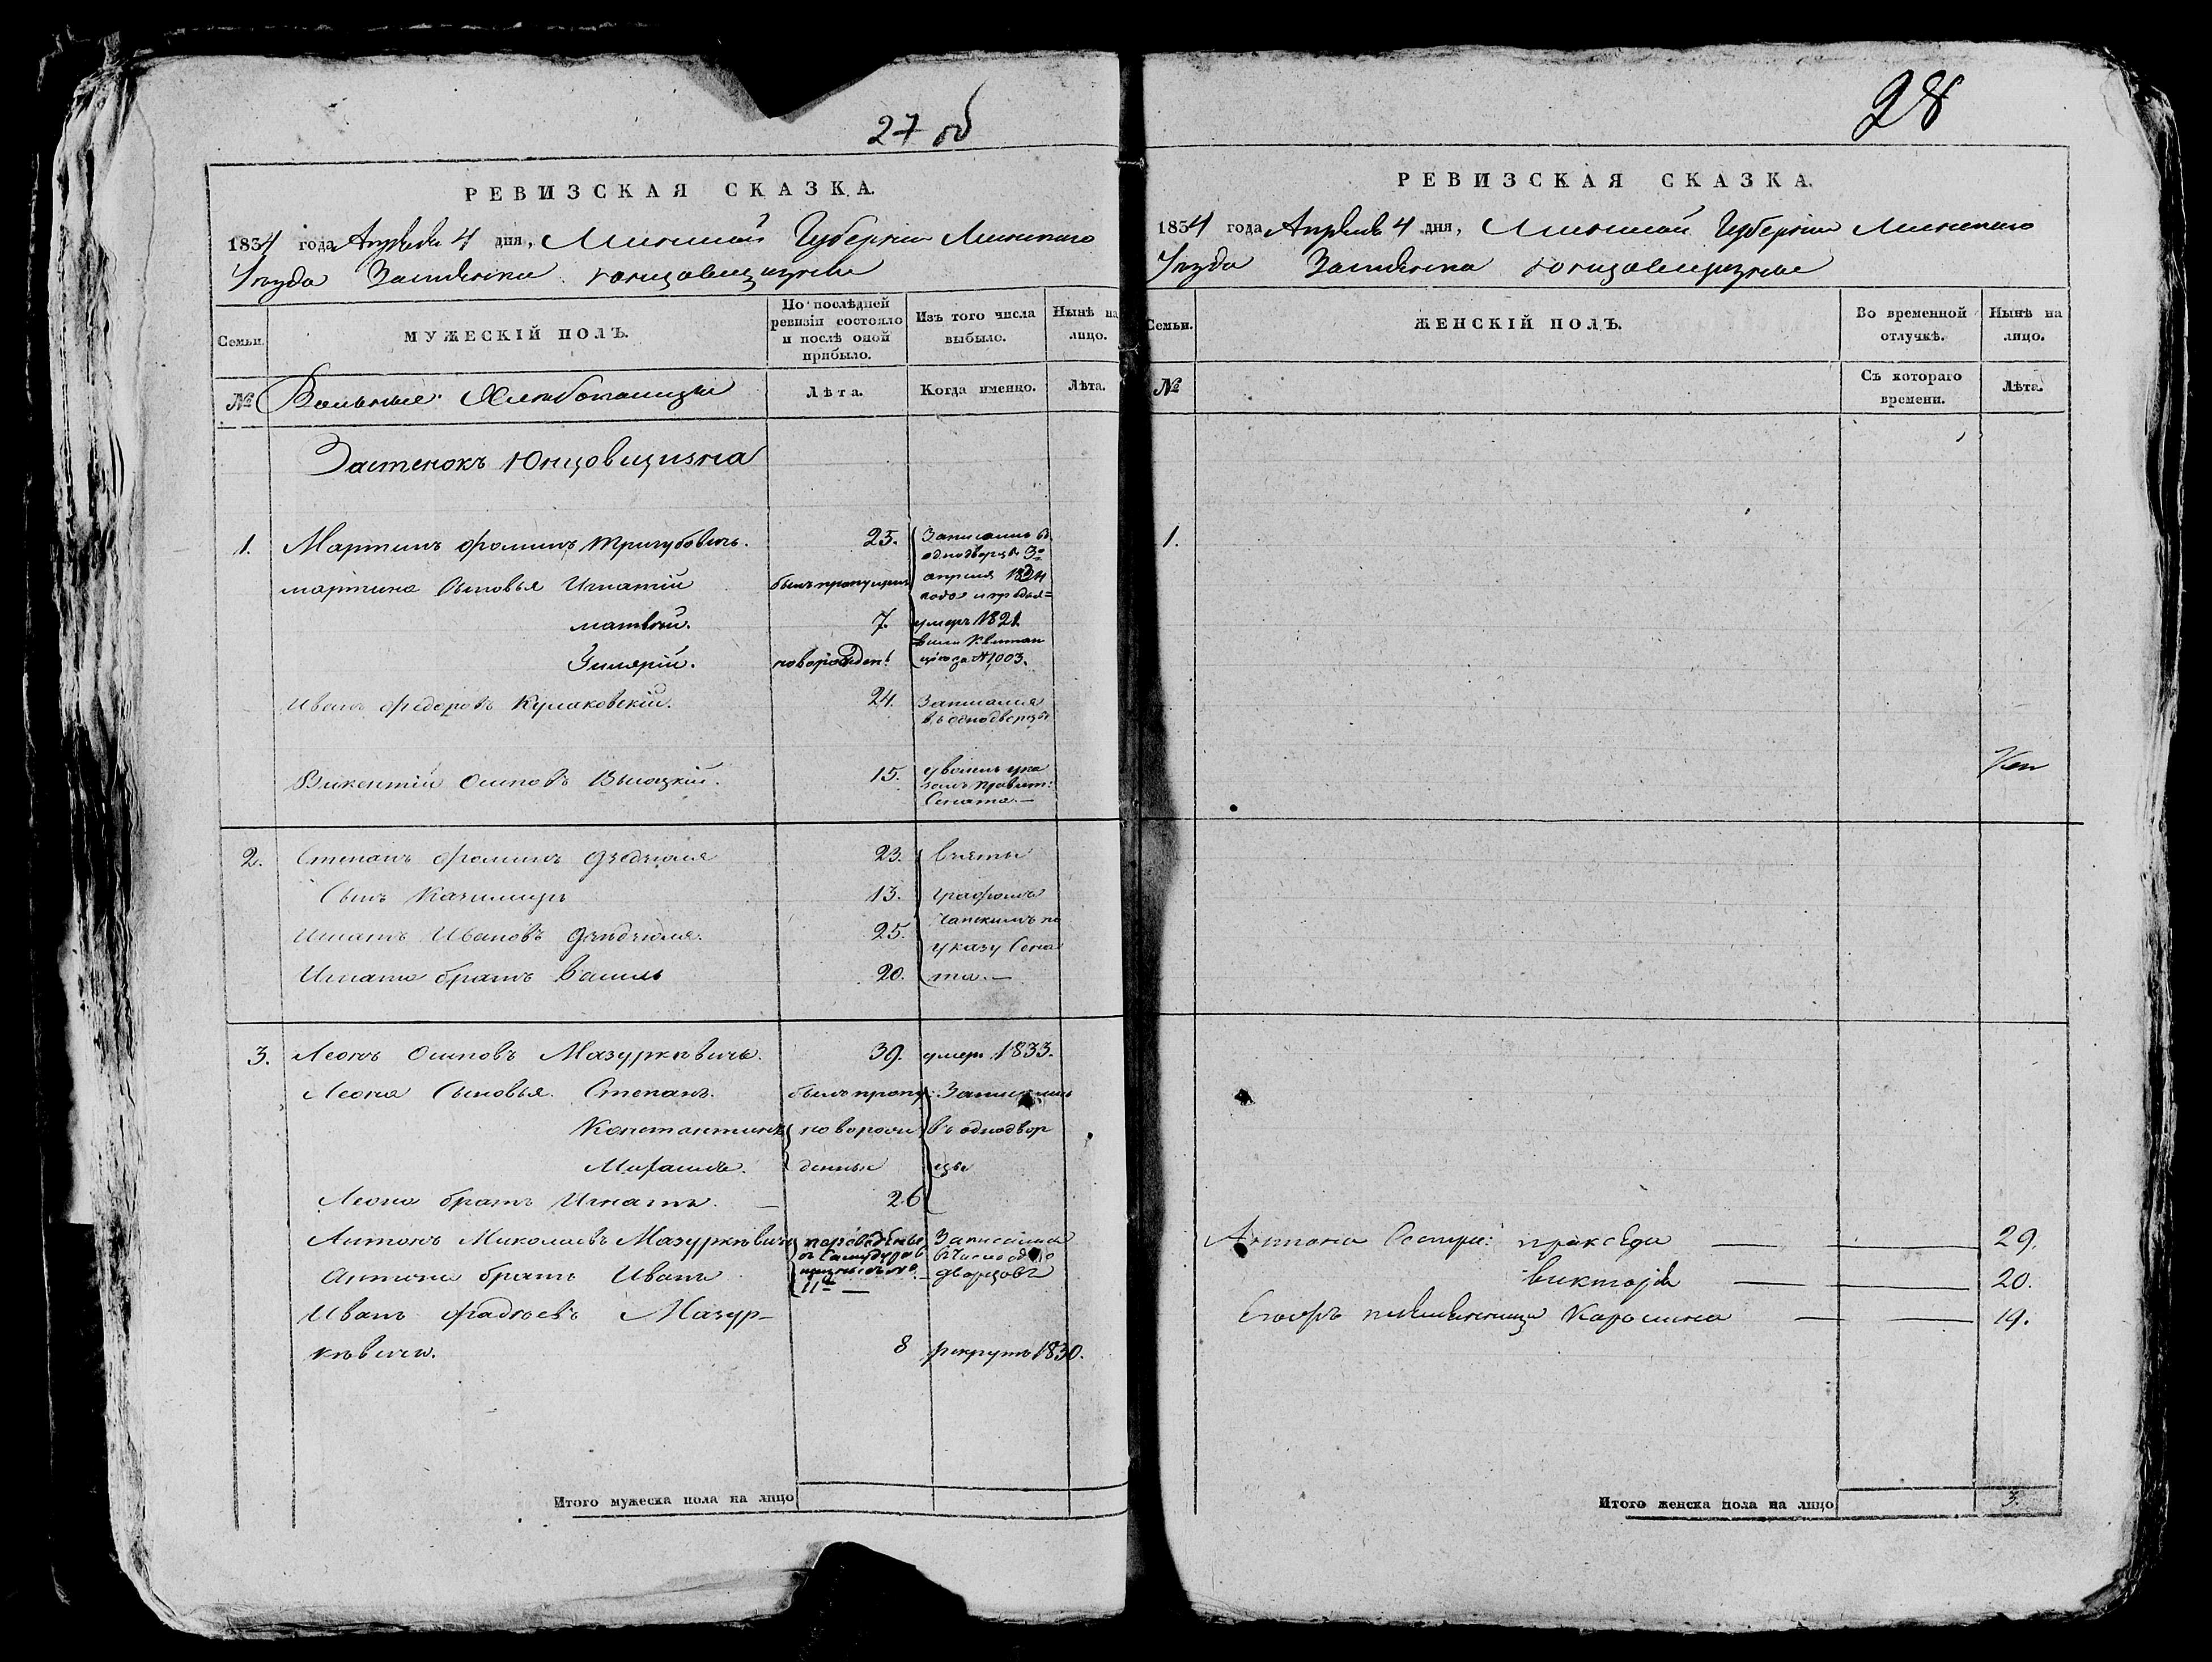 27 об
РЕВИЗСКАЯ СКАЗКА.
1834 года Апреля 4 дня, Минской Губернии Минскаго
Уезда Застенка Юнцовщизны
Семьи.
МУЖЕСКІЙ ПОЛЪ.
По послѣдней ревизіи состояло и послѣ оной прибыло.
Изъ того числа выбыло.
Нынѣ на лицо.
№
Вольные Хлебопашцы
Лѣта.
Когда именно.
Лѣта.
Застенокъ Юнцовщизна
1. Мартинъ Фоминъ Тригубовичъ. 25. Записаны въ
однодворцы 3го
мартина Сыновья Игнатій былъ пропущенъ апреля 1834
года
матвей. 7. умеръ 1821.
новорожден: №1003.
Иванъ Федоровъ Кулаковскій. 24. Записанъ
въ однодворцы
Викентій Осиповъ Высоцкій. 15. уволенъ ука
зомъ правит:
Сената.—
2. Степанъ Фоминъ 23. взяты
Сынъ Казимиръ 13. графомъ
Чапскимъ по
Игнатъ Ивановъ 25. указу Сена
Игната братъ Василь 20. та.—
3. Леонъ Осиповъ Мазуркевичъ. 39. умеръ 1833.
Леона Сыновья. Степанъ. былъ пропу: Записаны
Константинъ новорож въ однодвор
Михаилъ. денные цы
Леона братъ Игнатъ. — 26
Антонъ Миколаевъ Мазуркевичъ переведены Записаны
въ число одно
Антона братъ Иванъ дворцовъ
11 —
Иванъ Фадеевъ Мазур-
кевичъ. 8 рекрутъ 1830.
Итого мужеска пола на лицо
28
РЕВИЗСКАЯ СКАЗКА.
1834 года Апреля 4 дня, Минской Губернии Минскаго
Уезда Застенка Юнцовщизны
Семьи.
ЖЕНСКІЙ ПОЛЪ.
Во временной отлучкѣ.
Нынѣ на лицо.
№
Съ котораго времени.
Лѣта.
1.
Антона Сестры: праксЕда — — 29.
викторія — — 20.
племянница Каролина — — 19.
Итого женска пола на лицо 3.